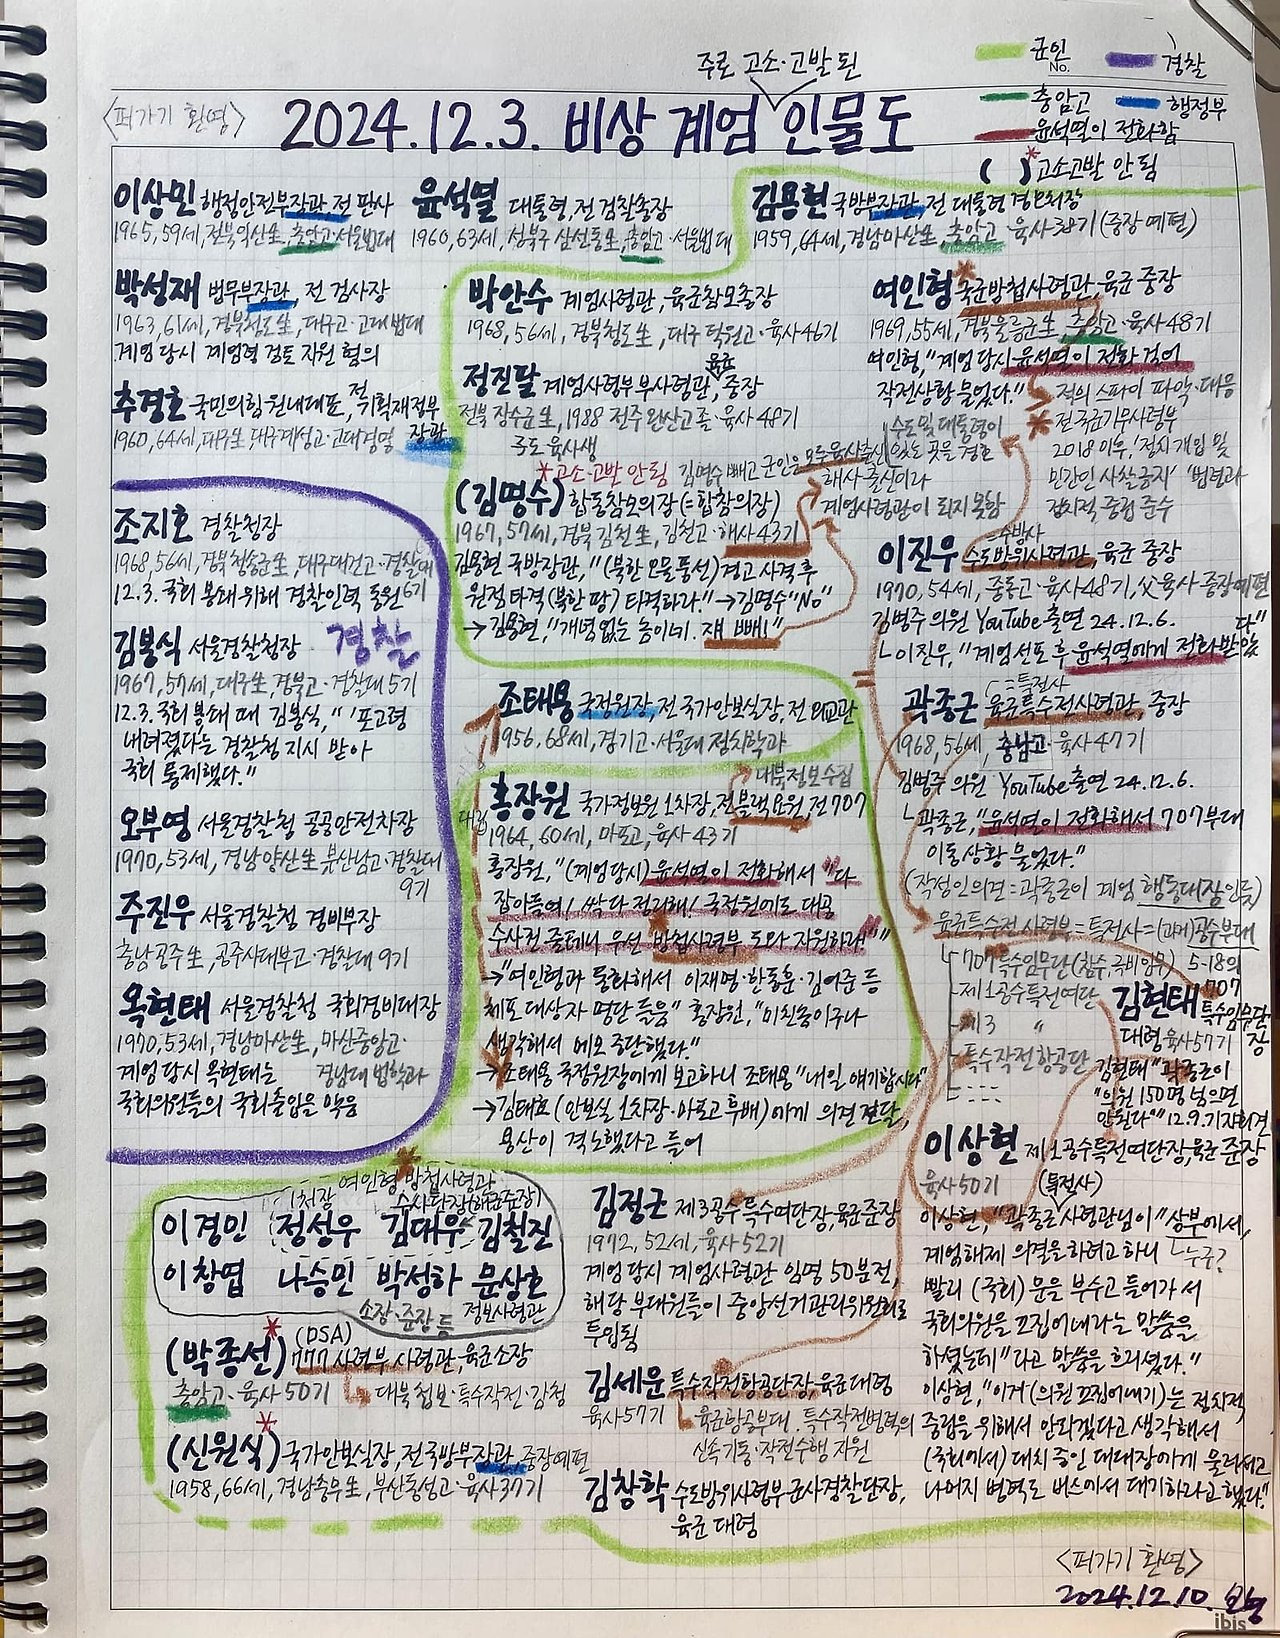 주로 고소·고발된
군인
경찰
No.
충암고
행정부
윤석열이 전화함
( )* 고소고발 안 됨
<퍼가기 환영>
2024.12.3. 비상 계엄 인물도
이상민 행정안전부장관 전 판사
1965, 59세, 전북익산生, 충암고·서울법대
윤석열 대통령, 전 검찰총장
1960, 63세, 성북구 삼선동生, 충암고·서울법대
김용현 국방부장관, 전 대통령 경호처장
1959, 64세, 경남마산生, 충암고·육사38기 (중장 예편)
박성재 법무부장관, 전 검사장
1963, 61세, 경북청도生, 대구고·고대법대
계엄 당시 계엄령 검토 지원 혐의
추경호 국민의힘 원내대표, 전 기획재정부
장관
1960, 64세, 대구生 대구계성고·고대경영
박안수 계엄사령관, 육군참모총장
1968, 56세, 경북청도生, 대구 덕원고·육사46기
정진팔 계엄사령부 부사령관, 육군 중장
전북 장수군生, 1988 전주 완산고 졸·육사48기
*고소·고발 안 됨
김명수 빼고 군인은 모두 육사출신
해사 출신이라
계엄사령관이 되지 못함
(김명수) 합동참모의장 (=합참의장)
1967, 57세, 경북 김천生, 김천고·해사43기
김용현 국방장관, "(북한 오물풍선) 경고 사격 후
원점타격 (북한 땅) 타격하라." → 김명수 "No"
→ 김용현, "개념 없는 놈이네. 쟤 빼!"
여인형* 국군방첩사령관, 육군 중장
1969, 55세, 경북울릉군生, 충암고·육사48기
여인형, "계엄 당시 윤석열이 전화 걸어
작전상황 들었다."
적의 스파이 파악·대응
* 전 국군기무사령부
2018 이후, '정치개입 및
민간인 사찰 금지' '법령과
정치적 중립 준수
수도 및 대통령이
있는 곳을 경호
=수방사
이진우 수도방위사령관, 육군 중장
1970, 54세, 중동고·육사48기, 父 육사·중장예편
김병주 의원 YouTube 출연 24.12.6.
└ 이진우, "계엄 선포 후 윤석열에게 전화받았
다"
조지호 경찰청장
1968, 56세, 경북청송군生, 대구대건고·경찰대
6기
12.3. 국회 봉쇄 위해 경찰인력 동원
경찰
김봉식 서울경찰청장
1967, 57세, 대구生, 경북고·경찰대 5기
12.3. 국회 봉쇄 때 김봉식, "'포고령
내려졌다'는 경찰청 지시 받아
국회 통제했다."
오부명 서울경찰청 공공안전차장
1970, 53세, 경남양산生, 부산남고·경찰대
9기
주진우 서울경찰청 경비부장
충남공주生, 공주사대부고·경찰대 9기
목현태 서울경찰청 국회경비대장
1970, 53세, 경남마산生, 마산중앙고·
경남대 법학과
계엄 당시 목현태는
국회의원들의 국회출입을 막음
조태용 국정원장, 전 국가안보실장, 전 외교관
1956, 68세, 경기고·서울대 정치학과
대북정보수집
홍장원 국가정보원 1차장, 전 블랙요원, 전 707
1964, 60세, 마포고, 육사 43기
홍장원, "(계엄당시) 윤석열이 전화해서 "다
잡아들여! 싹 다 정리해! 국정원에도 대공
수사권 줄테니 우선 방첩사령부 도와 지원하라!""
→ "여인형과 통화해서 이재명·한동훈·김어준 등
체포 대상자 명단 들음" 홍장원, "미친놈이구나
생각해서 메모 중단했다."
→ 조태용 국정원장에게 보고하니 조태용 "내일 얘기합시다"
→ 김태효 (안보실 1차장·마포고 후배)에게 의견 전달,
용산이 격노했다고 들어
=특전사
곽종근 육군특수전사령관, 중장
1968, 56세, 충남고·육사47기
김병주 의원 YouTube 출연 24.12.6.
└ 곽종근, "윤석열이 전화해서 707부대
이동상황 물었다."
(작성인의견 = 곽종근이 계엄 행동대장인듯)
육군특수전사령부 = 특전사 = (과거)공수부대
707특수임무단
제1공수특전여단
제3 〃
특수작전항공단
김현태 707
특수임무단
장
대령 육사57기
김현태 "곽종근이
"의원 150명 넘으면
안된다"" 12.9. 기자회견
이상현 제1공수특전여단장, 육군 준장
육사50기
(특전사)
이상현, "곽종근 사령관님이 "상부에서,
└누구?
계엄해제 의결을 하려고 하니
빨리 (국회) 문을 부수고 들어가서
국회의원을 끄집어내라는 말씀을
하셨는데" 라고 말씀을 흐리셨다."
이상현, "이거 (의원 끄집어내기)는 정치적
중립을 위해서 안되겠다고 생각해서
(국회에서) 대치 중인 대대장에게 물러서고
나머지 병력도 버스에서 대기하라고 했다."
여인형 방첩사령관
1처장
수사단장(해군준장)
이경민 정성우 김대우 김철진
이창엽 나승민 박성하 문상호
소장·준장 등
정보사령관
(박종선)* (DSA)
777 사령부 사령관, 육군소장
충암고·육사 50기
대북첩보·특수작전·감청
(신원식)* 국가안보실장, 전 국방부장관, 중장예편
1958, 66세, 경남통영生, 부산동성고·육사37기
김정근 제3공수특수여단장, 육군준장
1972, 52세, 육사52기
계엄 당시 계엄사령관 임명 50분전,
해당 부대원들이 중앙선거관리위원회로
투입됨
김세운 특수작전항공단장, 육군대령
육사57기 └ 육군항공부대. 특수작전병력의
신속기동·작전수행 지원
김창학 수도방위사령부 군사경찰단장,
육군 대령
<퍼가기 환영>
2024.12.10.
ibis